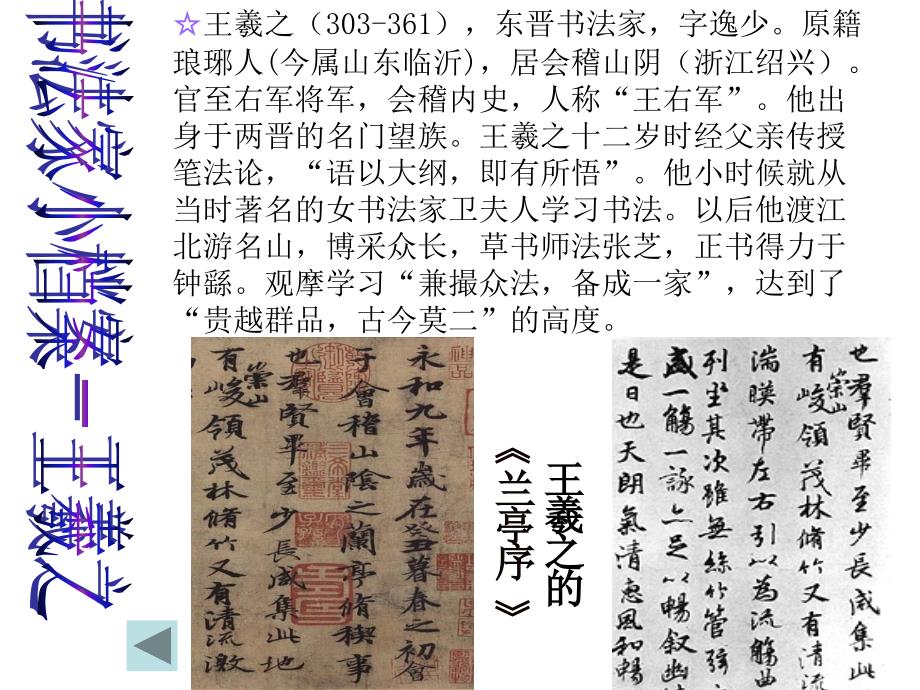 书法家小档案-王羲之
☆王羲之（303-361），东晋书法家，字逸少。原籍
琅琊人(今属山东临沂)，居会稽山阴（浙江绍兴）。
官至右军将军，会稽内史，人称“王右军”。他出
身于两晋的名门望族。王羲之十二岁时经父亲传授
笔法论，“语以大纲，即有所悟”。他小时候就从
当时著名的女书法家卫夫人学习书法。以后他渡江
北游名山，博采众长，草书师法张芝，正书得力于
钟繇。观摩学习“兼撮众法，备成一家”，达到了
“贵越群品，古今莫二”的高度。
永和九年歲在癸丑暮春之初會
于會稽山陰之蘭亭脩稧事
也羣賢畢至少長咸集此地
有崇山峻領茂林脩竹又有清流激
王羲之的
《兰亭序》
也羣賢畢至少長咸集此
有崇山峻領茂林脩竹又有清流
湍暎帶左右引以為流觴曲
列坐其次雖無絲竹管弦
盛一觴一詠亦足以暢叙幽
是日也天朗氣清惠風和暢